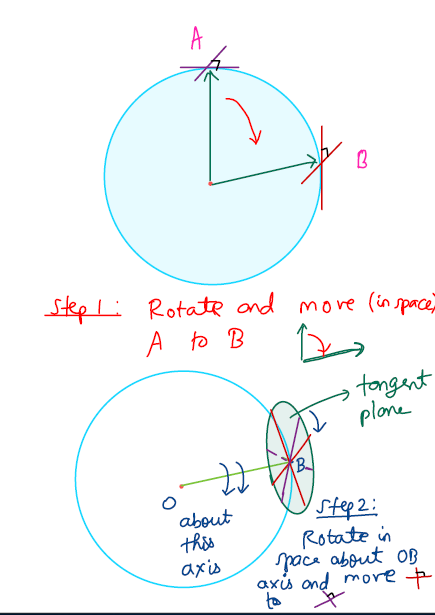 A
B
Step 1: Rotate and move (in space)
A to B
tangent
plane
B
O
about
this
axis
Step 2:
Rotate in
space about OB
axis and move
to